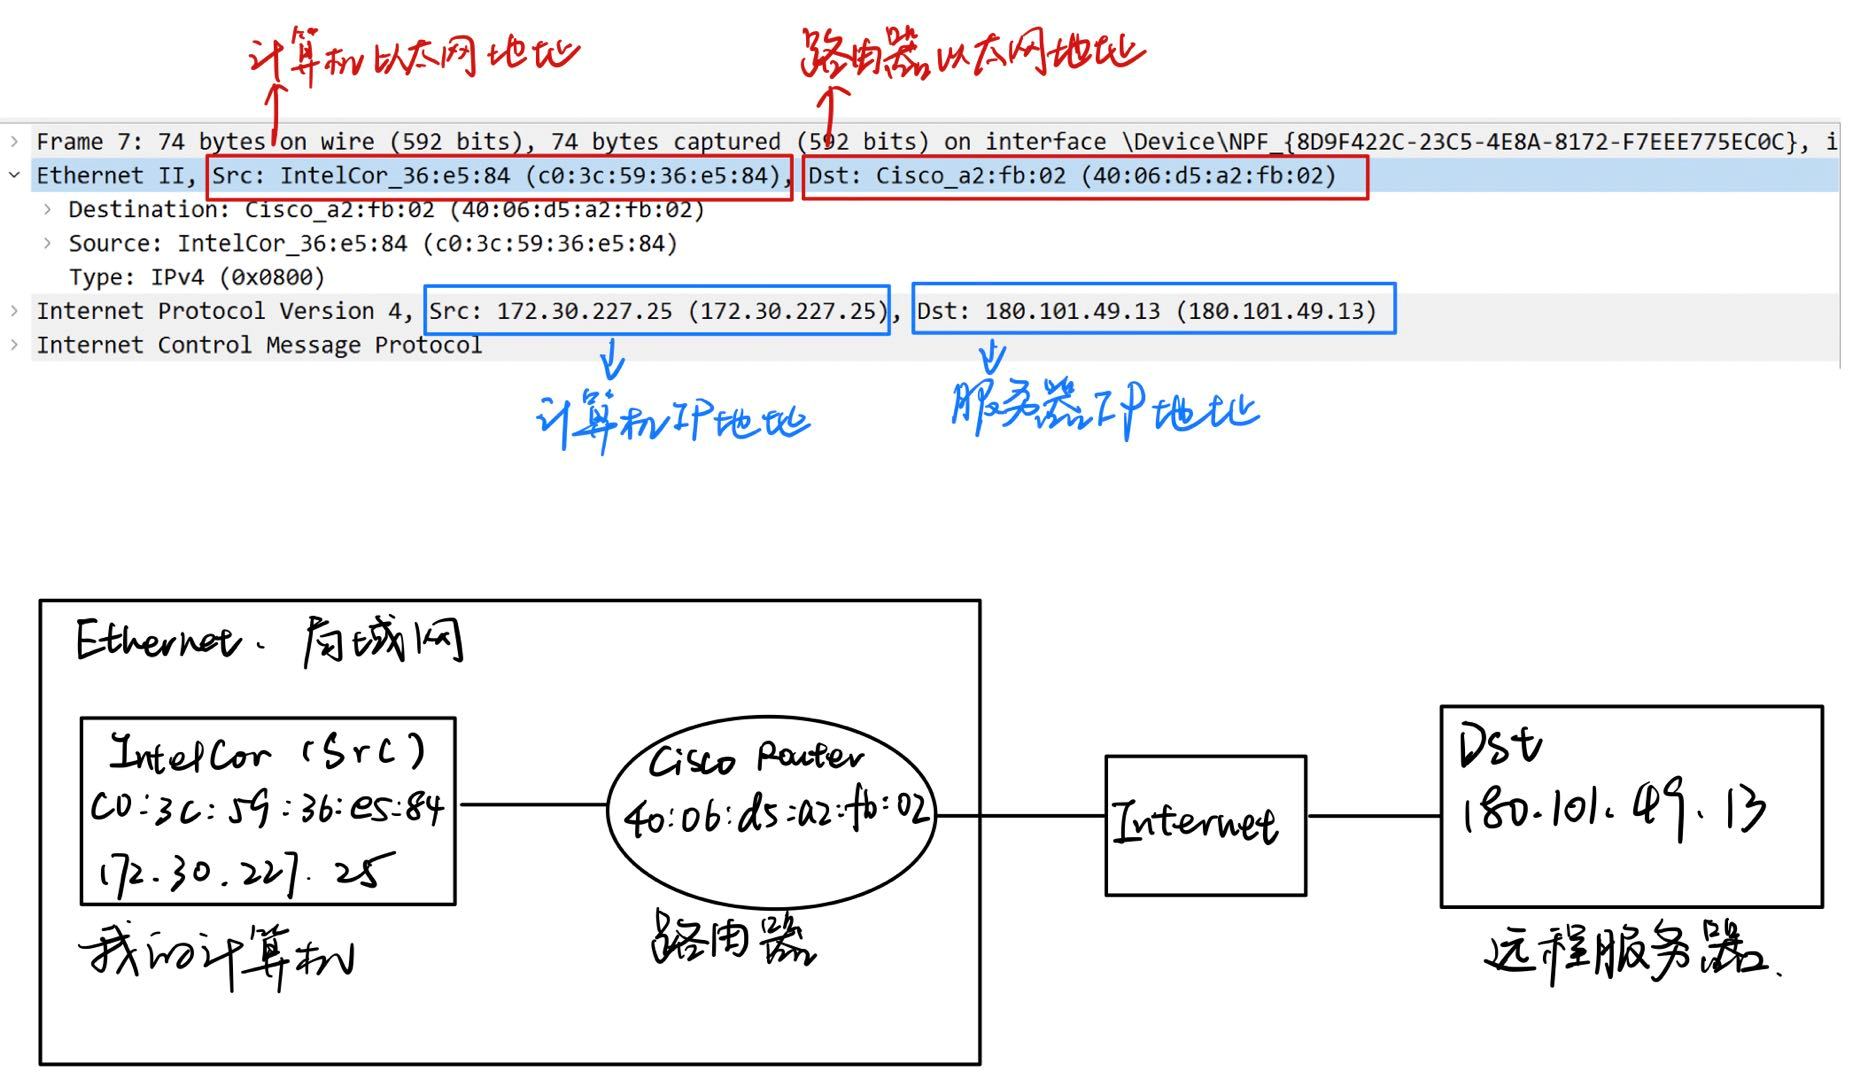 计算机以太网地址
路由器以太网地址
Frame 7: 74 bytes on wire (592 bits), 74 bytes captured (592 bits) on interface \Device\NPF_{8D9F422C-23C5-4E8A-8172-F7EEE775EC0C}, i
Ethernet II, Src: IntelCor_36:e5:84 (c0:3c:59:36:e5:84), Dst: Cisco_a2:fb:02 (40:06:d5:a2:fb:02)
Destination: Cisco_a2:fb:02 (40:06:d5:a2:fb:02)
Source: IntelCor_36:e5:84 (c0:3c:59:36:e5:84)
Type: IPv4 (0x0800)
Internet Protocol Version 4, Src: 172.30.227.25 (172.30.227.25), Dst: 180.101.49.13 (180.101.49.13)
Internet Control Message Protocol
计算机IP地址
服务器IP地址
Ethernet. 局域网
IntelCor (Src)
C0:3C:59:36:e5:84
172.30.227.25
我的计算机
Cisco Router
40:06:d5:a2:fb:02
路由器
Internet
Dst
180.101.49.13
远程服务器.